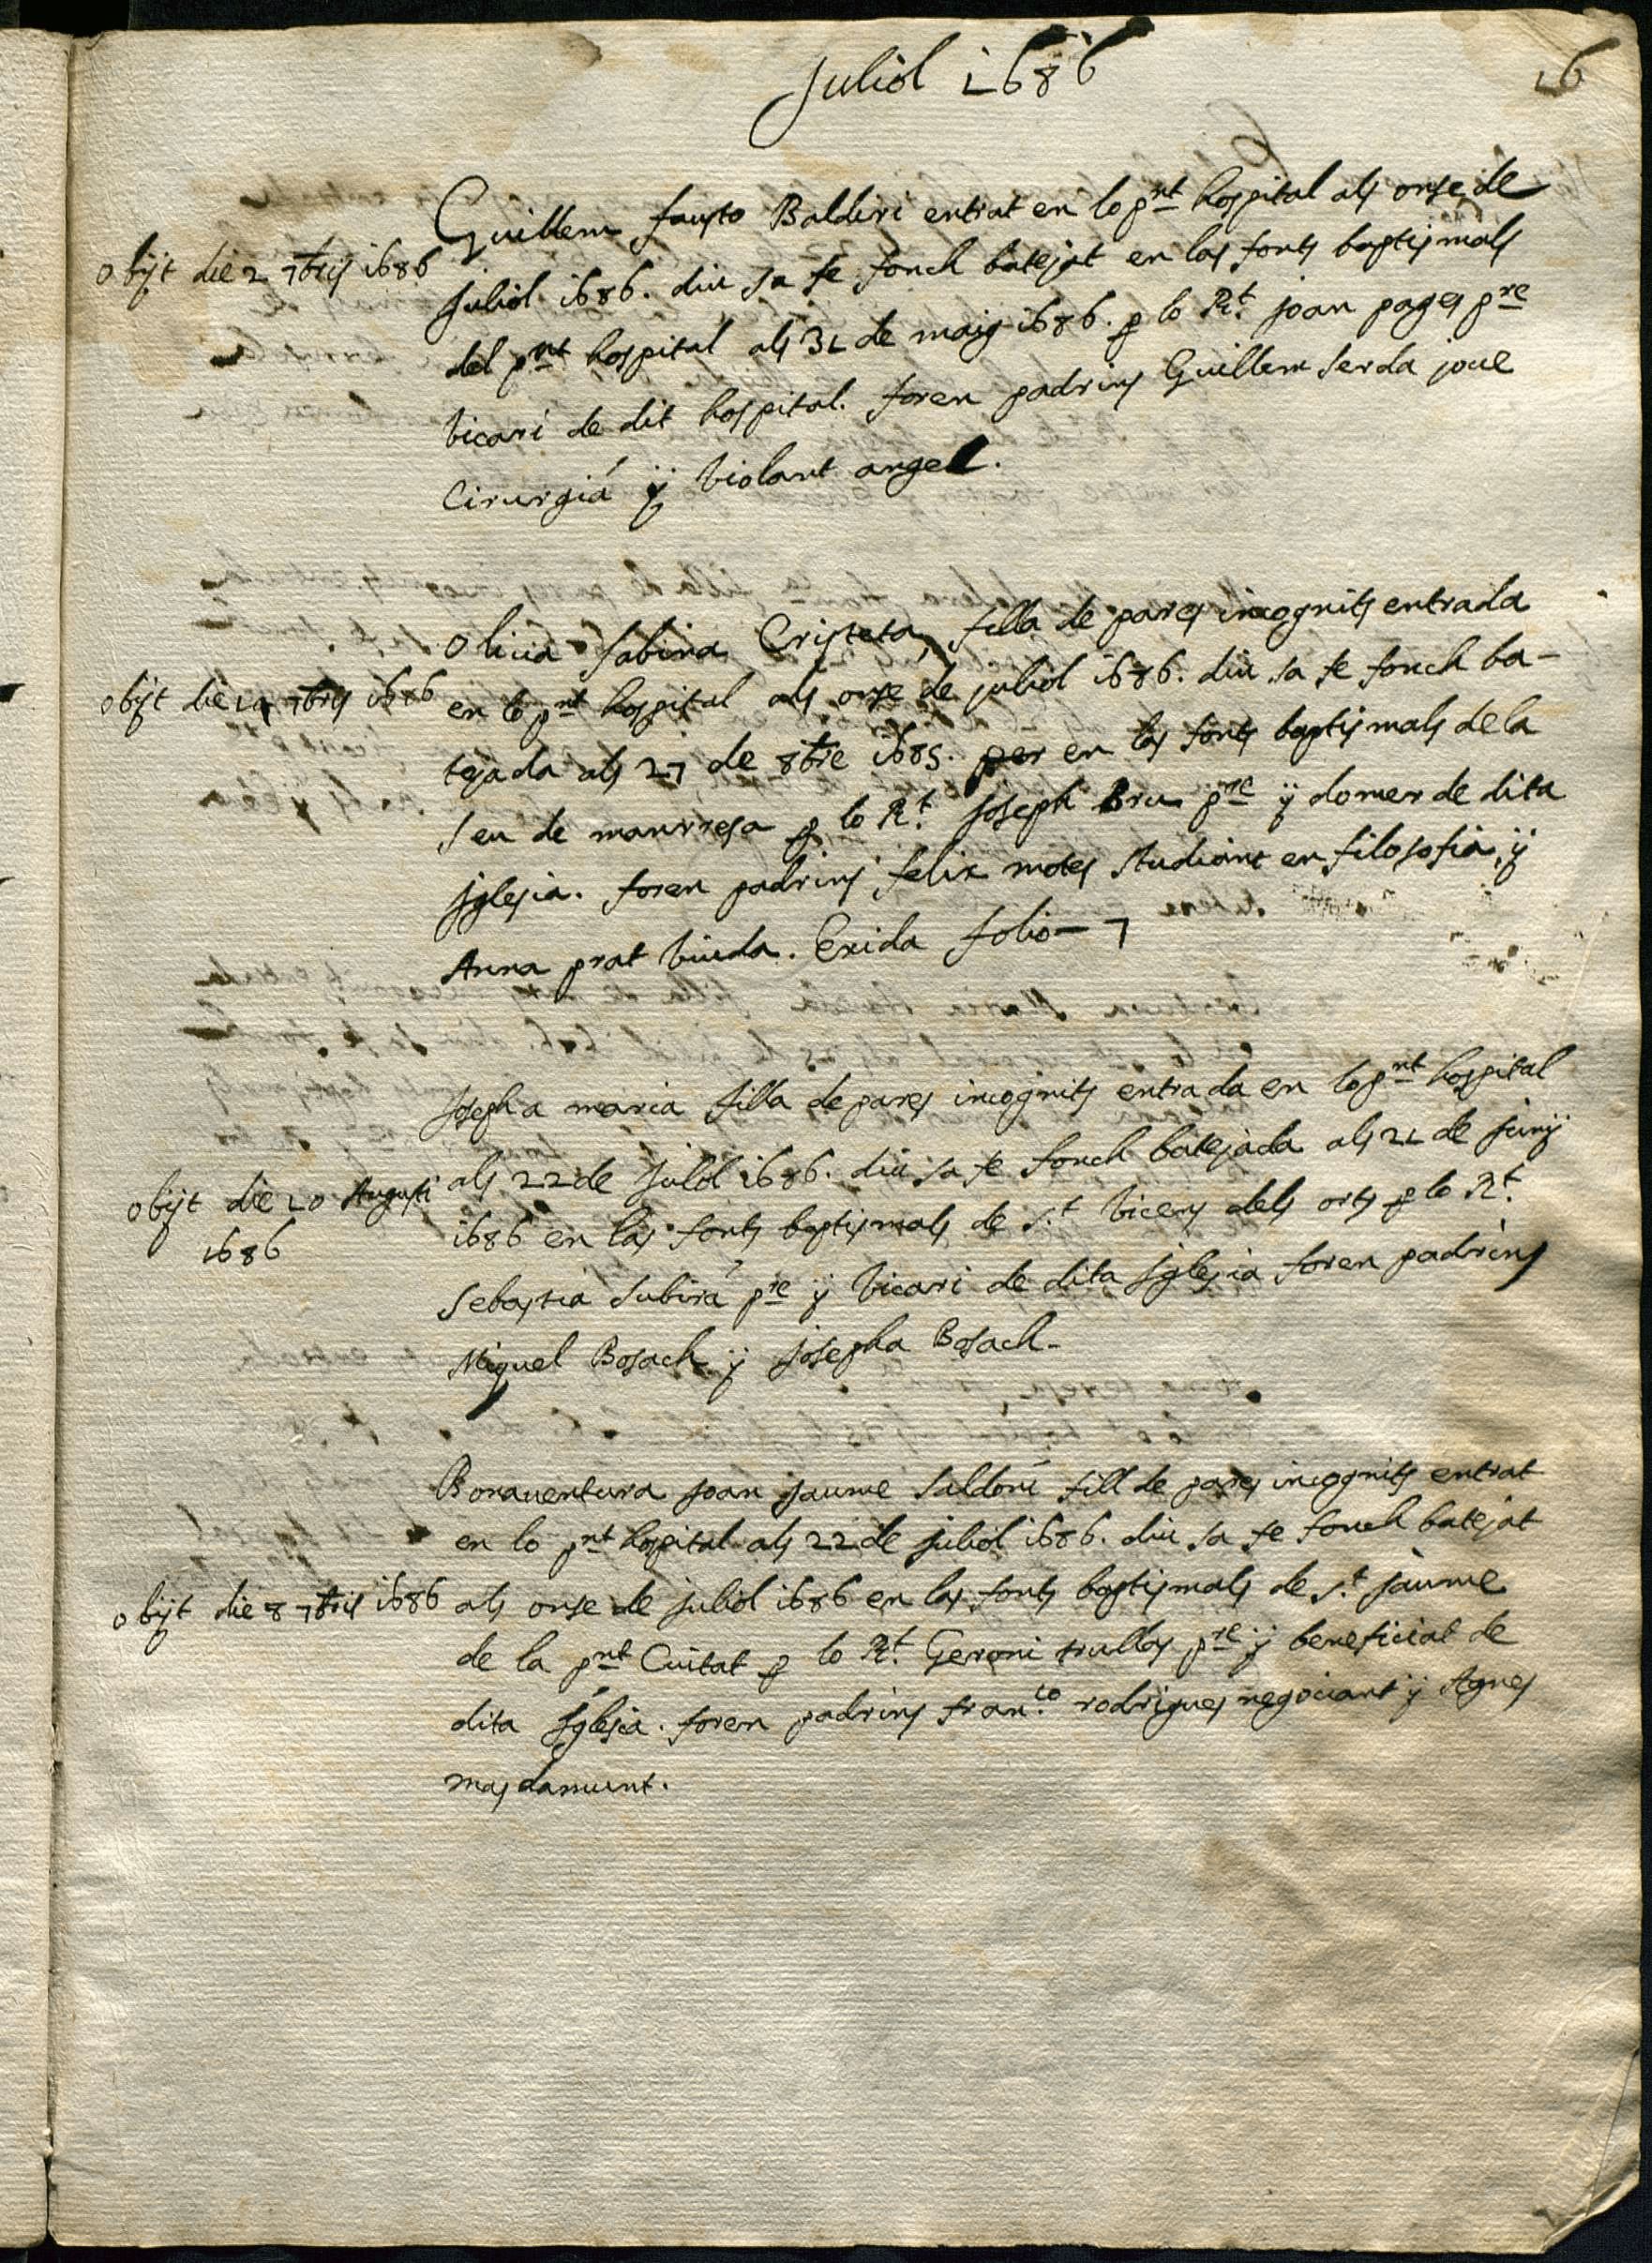 Juliol 1686
16
Guillem fausto Balderi entrat en lo pnt hospital als onse de
obijt die 2 7bris 1686
juliol 1686. diu sa fe fonch batejat en las fonts baptismals
del pnt hospital als 31 de maig 1686. p lo Rt. joan pages pre
vicari de dit hospital. foren padrins Guillem serda jove
Cirurgiá ÿ violant angel.
Olicia sabina Cristeta, filla de pares incognits entrada
obijt die 7bris 1686
en lo pnt hospital als onse de juliol 1686. diu sa fe fonch ba-
tejada als 27 de 8bre 1685. per en las fonts baptismals de la
seu de manrresa p lo Rt. Joseph Bru pre ÿ domer de dita
Jglesia. foren padrins felix motes studiant en filosofia, ÿ
Anna prat viuda. Exida folio - 7
Josepha maria filla de pares incognits entrada en lo pnt hospital
als 22 de Juliol 1686. diu sa fe fonch batejada als 21 de junÿ
obijt die 10 Augusti
1686
1686 en las fonts baptismals de s.t vicens dels orts p lo Rt.
Sebastia Subirá pre ÿ vicari de dita Jglesia foren padrins
Miquel Bosach ÿ Josepha Bosach-
Bonaventura Joan Jaume saldoni fill de pares incognits entrat
en lo pnt hospital als 22 de juliol 1686. diu sa fe fonch batejat
obijt die 8 7bris 1686
als onse de juliol 1686 en las fonts baptismals de s.t jaume
de la pnt Ciutat p lo Rt. Geroni trullas pre ÿ beneficiat de
dita Jglesia. foren padrins fran.co rodrigues negociant ÿ Agnes
masdamunt.